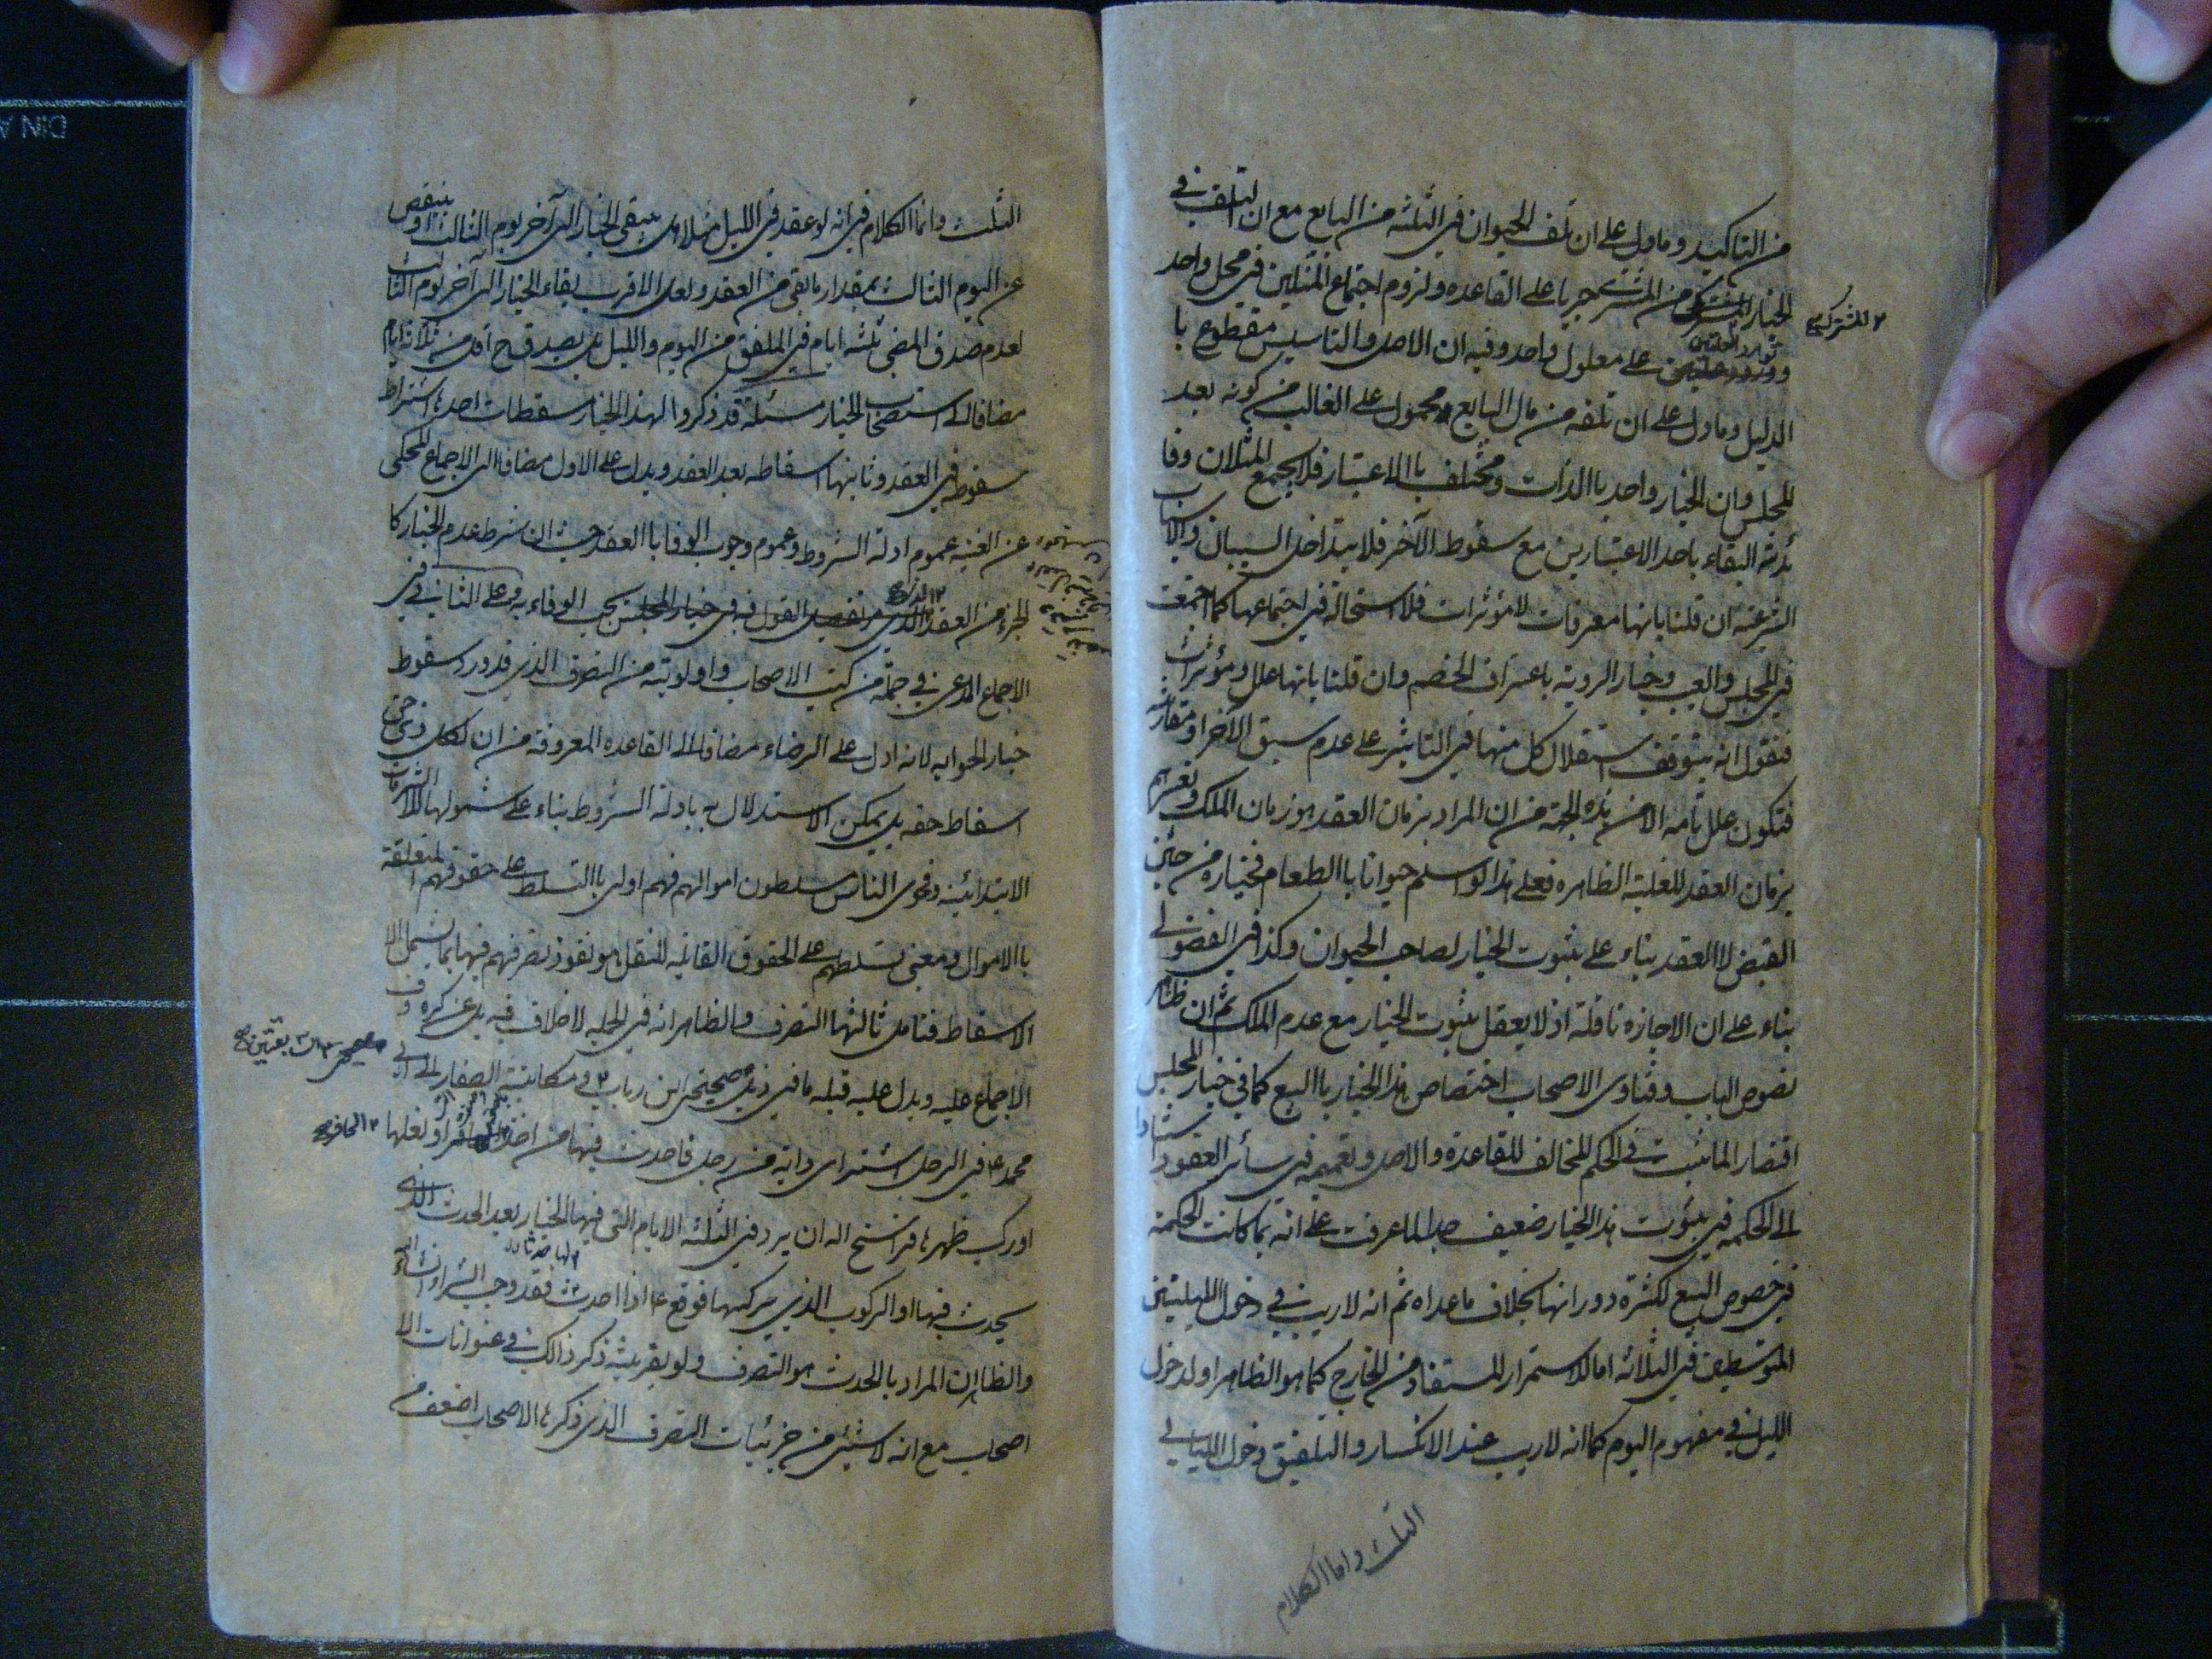 من التاكيد وما دل على ان تلف الحيوان في الثلثه من البايع مع ان التلف في
الخيار المشترك من المشتري جريا على القاعده ولزوم اجتماع المثلين في محل واحد
للمشتركين
توارد العلتين
على معلول واحد وفيه ان الاصل والتاسيس مقطوع با
الدليل وما دل على ان تلفه من مال البايع محمول على الغالب من كونه بعد
المجلس وان الخيار واحد باالذات ومختلف باالاعتبار فلا يجمع المثلان وفا
ئدته البقاء باحد الاعتبارين مع سقوط الآخر فلا يتداخل السببان والاسباب
الشرعيه ان قلنا بانها معرفات لا مؤثرات فلا استحالة في اجتماعها كما اجتمعت
في المجلس والعيب وخيار الرويه باعتراف الخصم وان قلنا بانها علل ومؤثرات
فنقول انه يتوقف استقلال كل منها في التاثير على عدم سبق الآخر او مقارنته
فتكون علل تامه الا من هذه الجهة من ان المراد بزمان العقد هو زمان الملك وتعبيرهم
بزمان العقد للغلبة الظاهره فعلى هذا لو اسلم حيوانا باالطعام فخياره من حين
القبض لا العقد بناء على ثبوت الخيار لصاحب الحيوان وكذا في الفضولي
بناء على ان الاجازه ناقلة اذ لا يعقل ثبوت الخيار مع عدم الملك ثم ان ظاهر
نصوص الباب وفتاوى الاصحاب اختصاص هذا الخيار باالبيع كما في خيار المجلس
اقتصارا لما ثبت في الحكم المخالف للقاعدة والاصل وتعميمه في سائر العقود استنادا
الى الحكمه في ثبوت هذا الخيار ضعيف جدا لما عرفت على انه ربما كانت الحكمة
في خصوص البيع لكثرة دورانها بخلاف ما عداه ثم انه لا ريب في دخول الليلتين
المتوسطين في الثلاثه اما للاستمرار المستفاد من الخارج كما هو الظاهر او لدخول
الليل في مفهوم اليوم كما انه لا ريب عند الانكسار والتلفيق دخول الليالي
الثلث واما الكلام
الثلث وانما الكلام في انه لو عقد في الليل مثلا هل يبقى الخيار الى آخر يوم الثالث او ينقص
عن اليوم الثالث بمقدار ما بقي من العقد ولعل الاقرب بقاء الخيار الى آخر يوم الثالث
لعدم صدق المضي ثلثه ايام في الملفق من اليوم والليل بل يصدق ح اقل من ثلاثة ايام
مضافا الى استصحاب الخيار مسئلة قد ذكروا لهذا الخيار مسقطات احدها اشتراط
سقوطه في العقد وثانيها اسقاطه بعد العقد ويدل على الاول مضافا الى الاجماع المحكي
عن الغنيه عموم ادلة الشروط وعموم وجوب الوفا باالعقد حيث ان شرط عدم الخيار كا
لجزء من العقد الذي القول فيه في خيار المجلس يجب الوفاء به وعلى الثاني في
الاجماع المدعى في جملة من كتب الاصحاب واولويته من التصرف الذي قد ورد سقوط
خيار الحيوان به لانه ادل على الرضاء مضافا الى القاعده المعروفه من ان لكل ذي حق
اسقاط حقه بل يمكن الاستدلال بادلة الشروط بناء على شمولها للالتزامات
الابتدائيه وفحوى الناس مسلطون اموالهم فهم اولى باالتسلط على حقوقهم المتعلقة
باالاموال ومعنى تسلطهم على الحقوق القابله للنقل هو نفوذ تصرفهم فيها بما يشمل الا
الاسقاط فتامل ثالثها التصرف والظاهر انه في الجمله لا خلاف فيه بل عن كره وف
الاجماع عليه ويدل عليه قبله ما في ذيل صحيحتي ابن رباب وفي مكاتبة الصفار الى ابي
محمد ع في الرجل اشترى دابه من رجل فاحدث فيها من اخذ الحافر او نعلها
او ركب ظهرها فراسخ اله ان يرد في الثلثه الايام التي فيها الخيار بعد الحدث الذي
يحدث فيها او الركوب الذي يركبها فوقع ع اذا احدث فقد وجب الشراء انشاء الله
والظاهر ان المراد بالحدث هو التصرف ولو بقرينة ذكر ذالك في عنوانات الا
صحاب مع انه لا شيئ من جزئيات التصرف الذي ذكرها الاصحاب اضعف